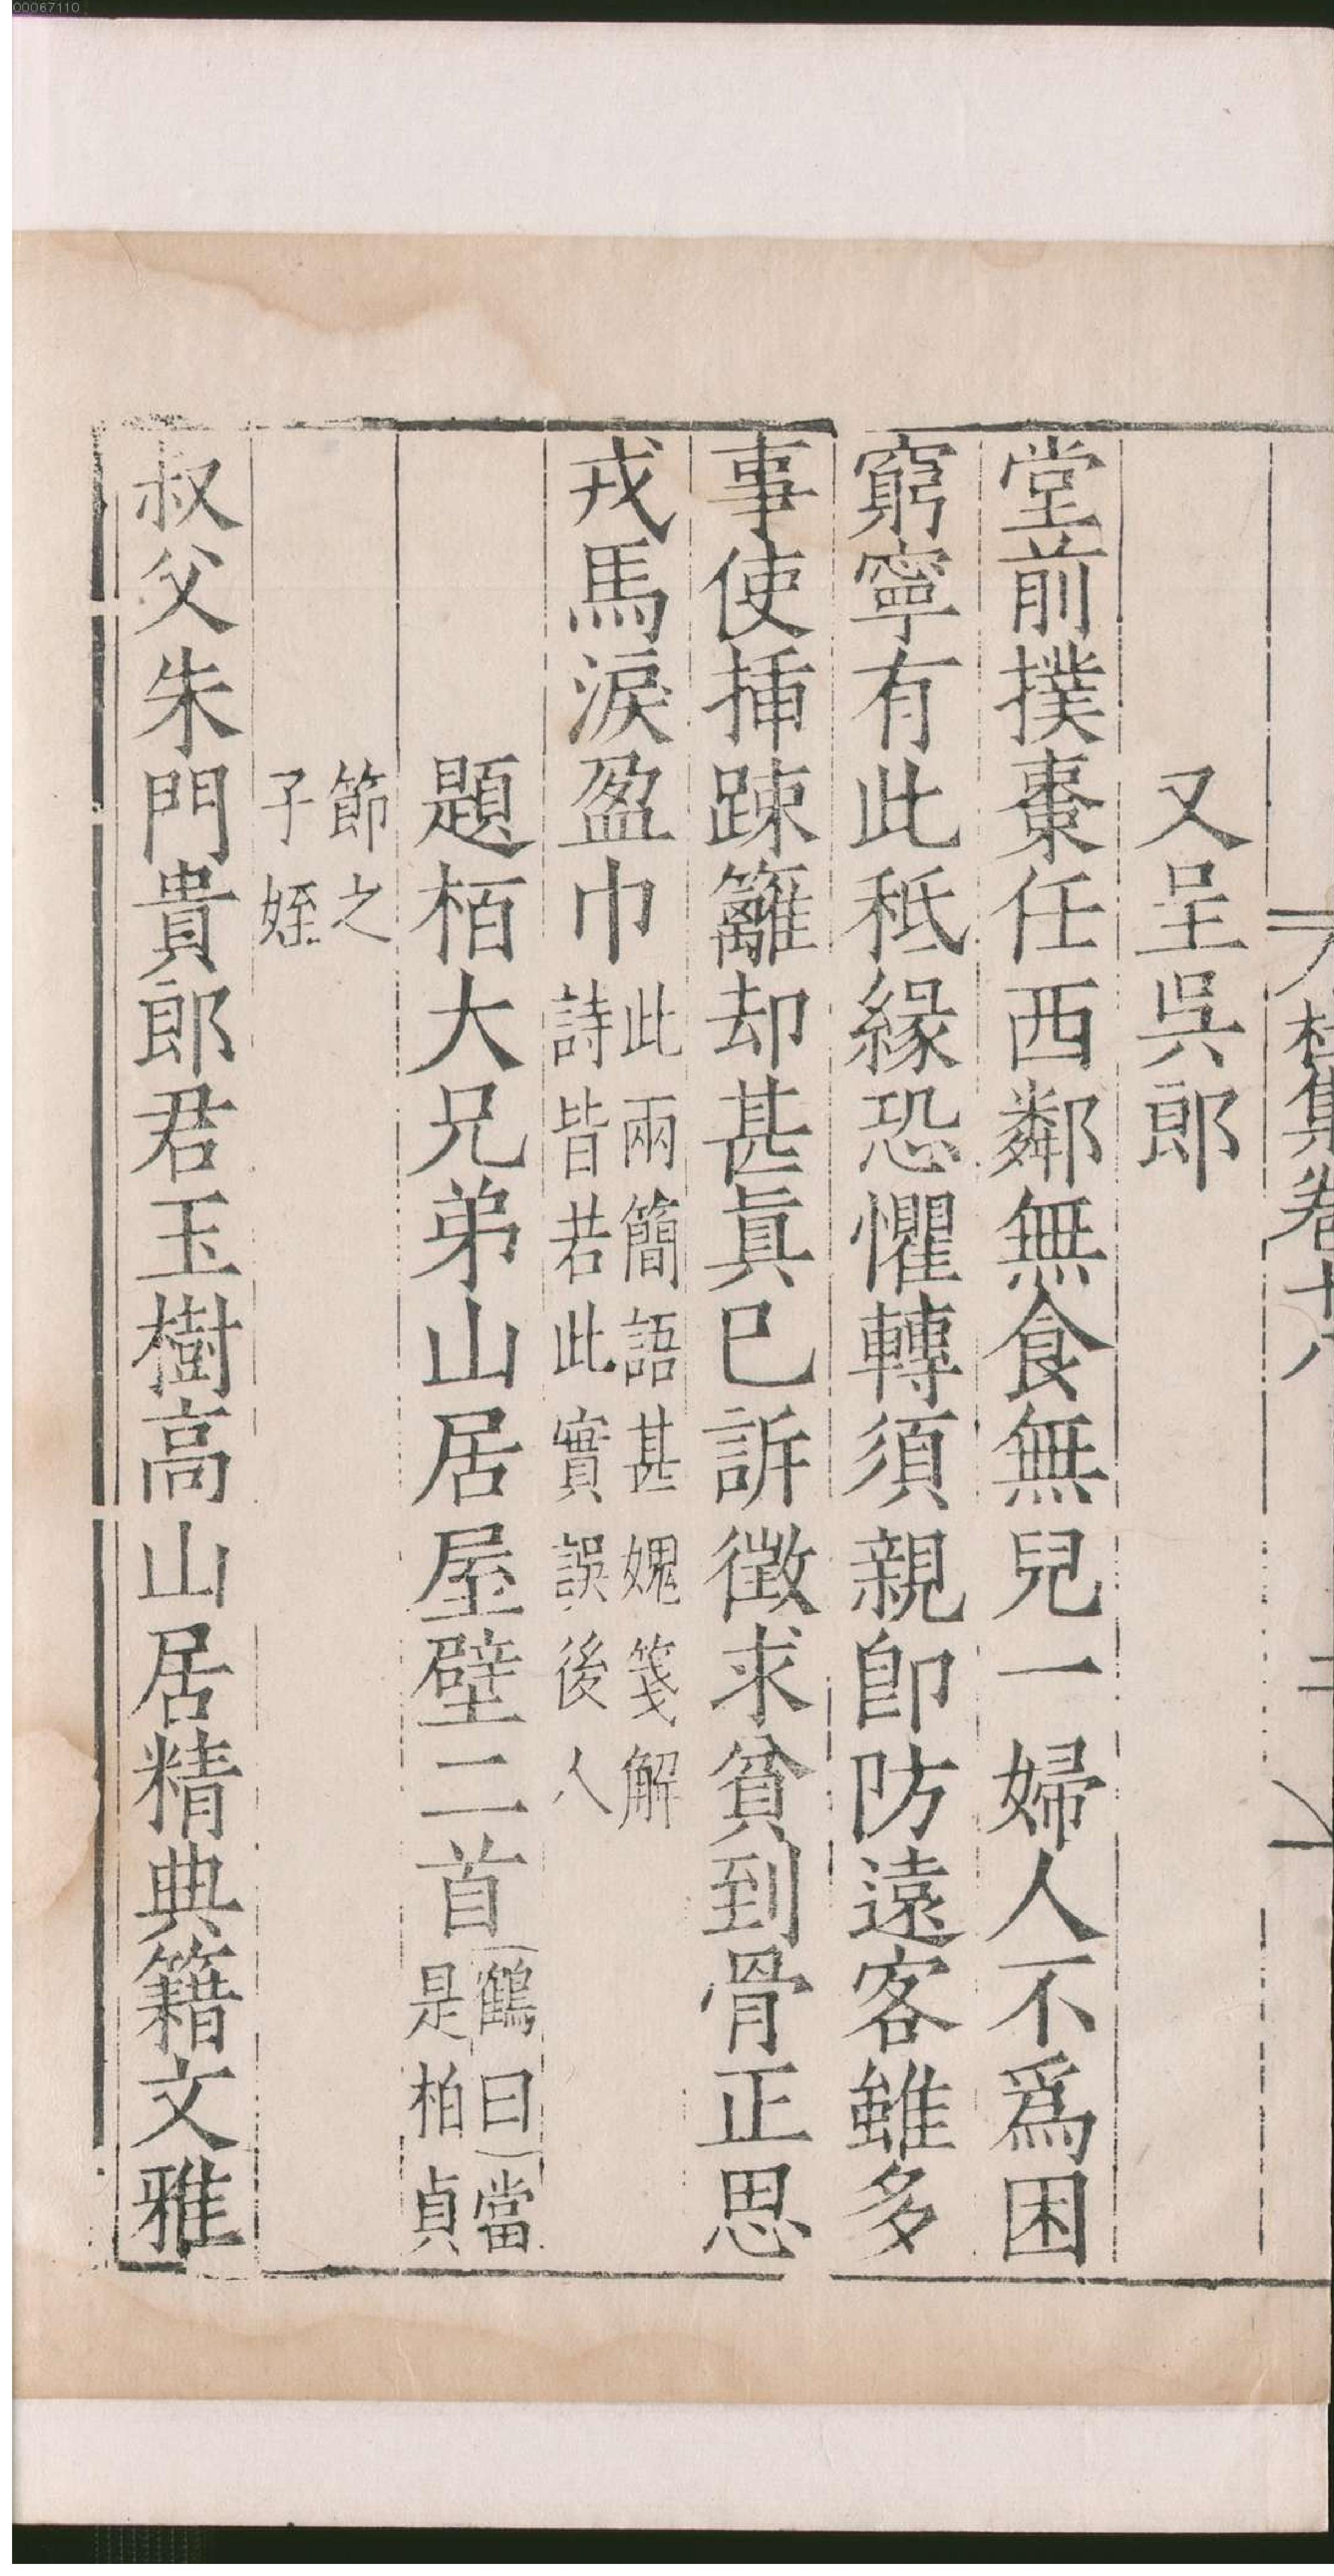 00067110
杜集卷十八
又呈吳郎
堂前撲棗任西鄰無食無兒一婦人不爲困
窮寧有此秖緣恐懼轉須親卽防遠客雖多
事使揷踈籬却甚眞已訴徵求貧到骨正思
戎馬淚盈巾此兩簡語甚媿箋解
詩皆若此實誤後人
題栢大兄弟山居屋壁二首鶴曰當
是柏貞
節之
子姪
叔父朱門貴郎君玉樹高山居精典籍文雅